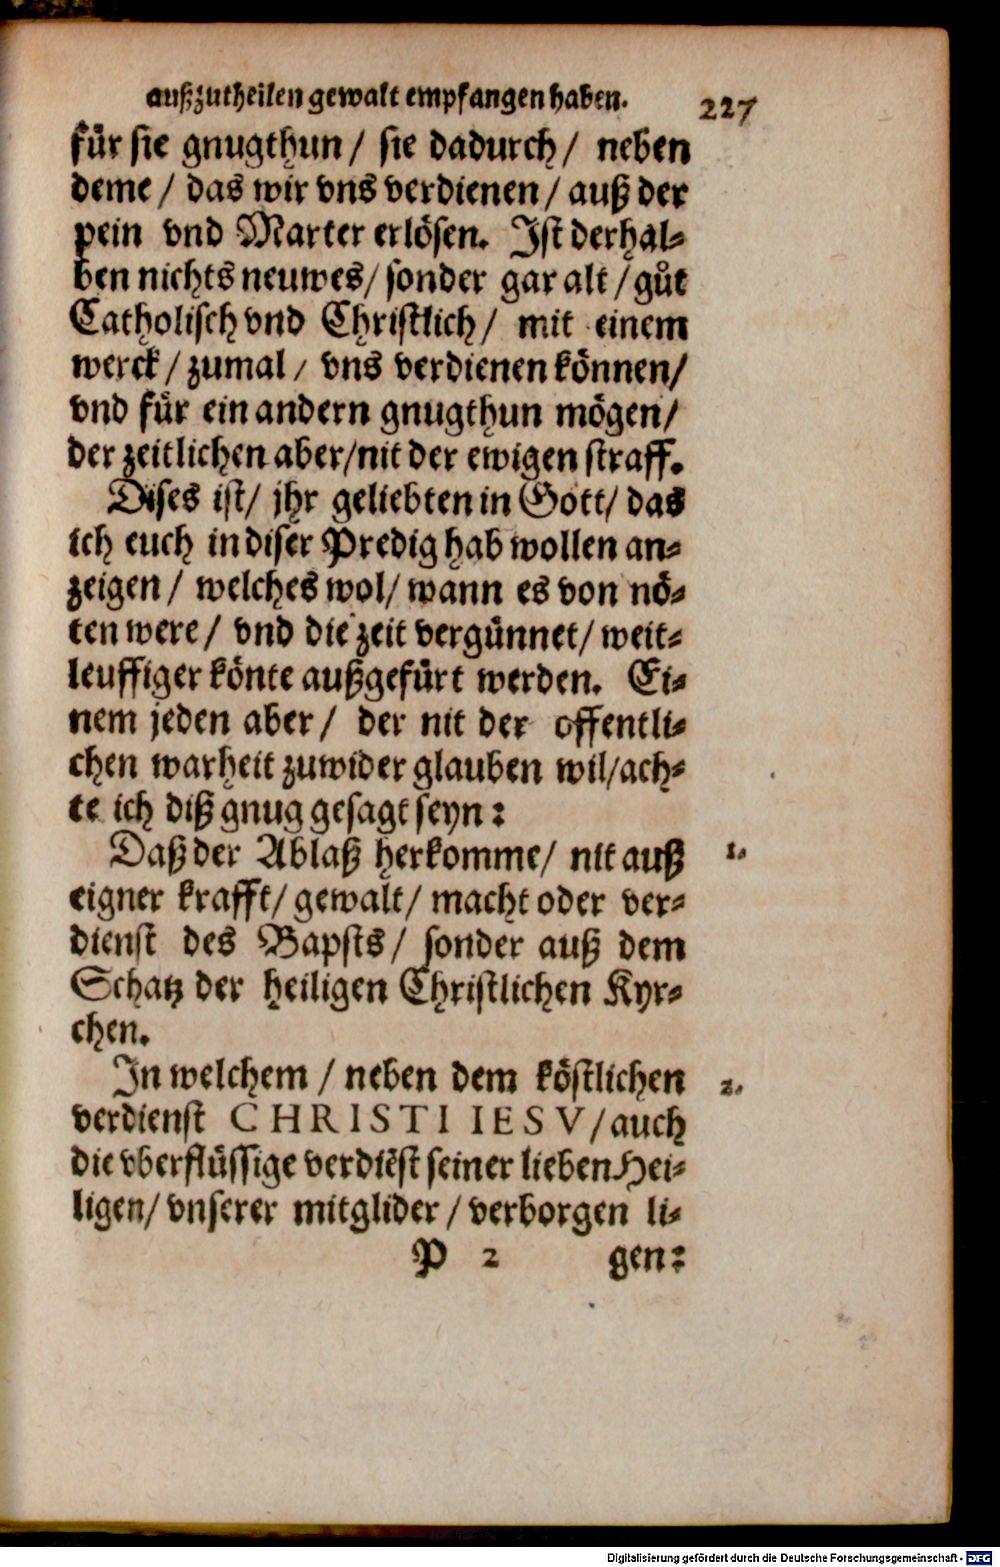 außzutheilen gewalt empfangen haben. 227
für sie gnugthun / sie dadurch / neben
deme / das wir vns verdienen / auß der
pein vnd Marter erlösen. Ist derhal-
ben nichts neuwes / sonder gar alt / gůt
Catholisch vnd Christlich / mit einem
werck / zumal / vns verdienen können /
vnd für ein andern gnugthun mögen /
der zeitlichen aber / nit der ewigen straff.
Dises ist / jhr geliebten in Gott / das
ich euch in diser Predig hab wollen an-
zeigen / welches wol / wann es von nö-
ten were / vnd die zeit vergünnet / weit-
leuffiger könte außgefürt werden. Ei-
nem jeden aber / der nit der offentli-
chen warheit zuwider glauben wil / ach-
te ich diß gnug gesagt seyn:
Daß der Ablaß herkomme / nit auß 1.
eigner krafft / gewalt / macht oder ver-
dienst des Bapsts / sonder auß dem
Schatz der heiligen Christlichen Kyr-
chen.
In welchem / neben dem köstlichen 2.
verdienst CHRISTI IESV / auch
die vberflüssige verdiēst seiner lieben Hei-
ligen / vnserer mitglider / verborgen li-
P 2 gen:
Digitalisierung gefördert durch die Deutsche Forschungsgemeinschaft - DFG